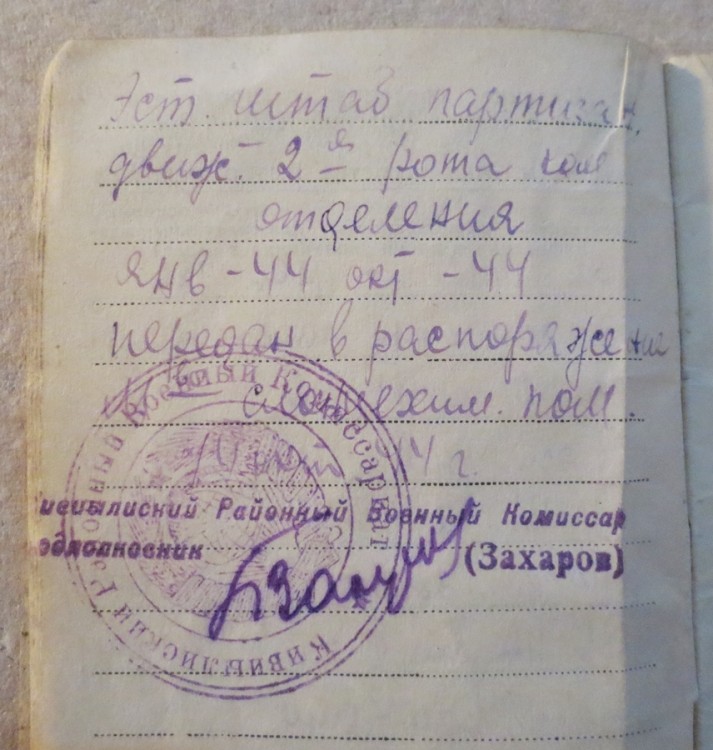 Эст. штаб партизан.
движ. 2я рота ком
отделения
янв -44 окт -44
передан в распоряжения
пом.
44 г.
ивиылиский Районный Военный Комиссар
одполковник
(Захаров)
Кивиылиский Районный Военный Комиссариат